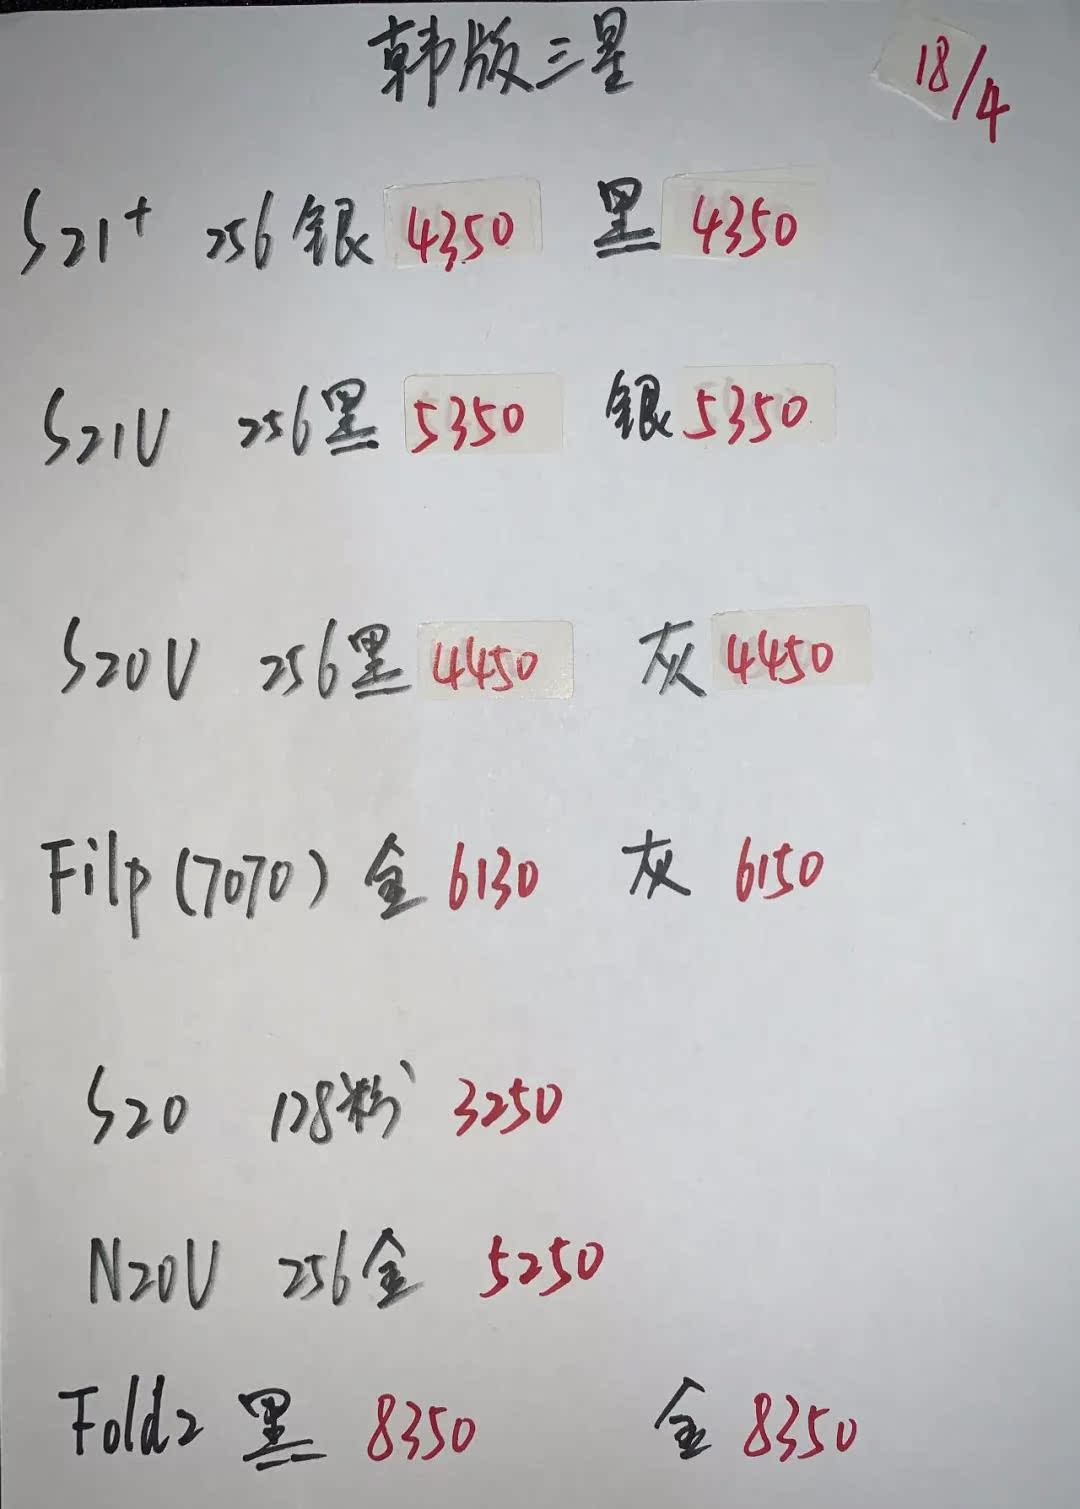 韩版三星
18/4
S21+ 256银 4350 黑 4350
S21U 256黑 5350 银 5350
S20U 256黑 4450 灰 4450
Filp(7070) 金 6130 灰 6150
S20 128粉 3250
N20U 256金 5250
Fold2 黑 8350 金 8350